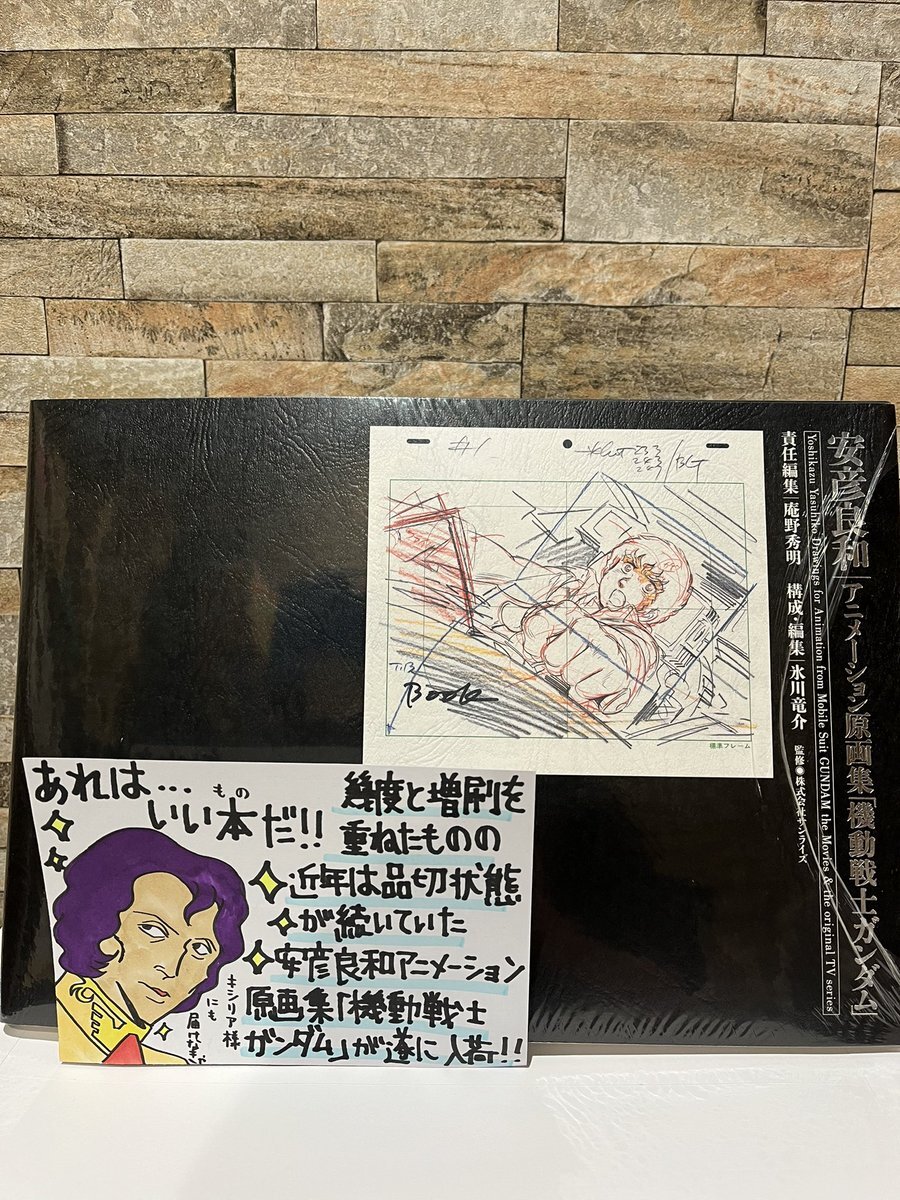 安彦良和 アニメーション原画集「機動戦士ガンダム」
Yoshikazu Yasuhiko Drawings for Animation from Mobile Suit GUNDAM the Movies & the original TV series
責任編集 庵野秀明 構成・編集 氷川竜介 監修◉株式会社サンライズ
#1
標準フレーム
あれは…
もの
いい本だ!!
幾度と増刷を
重ねたものの
近年は品切状態
が続いていた
安彦良和アニメーション
原画集「機動戦士
ガンダム」が遂に入荷!!
キシリア様
にも
届けなきゃ